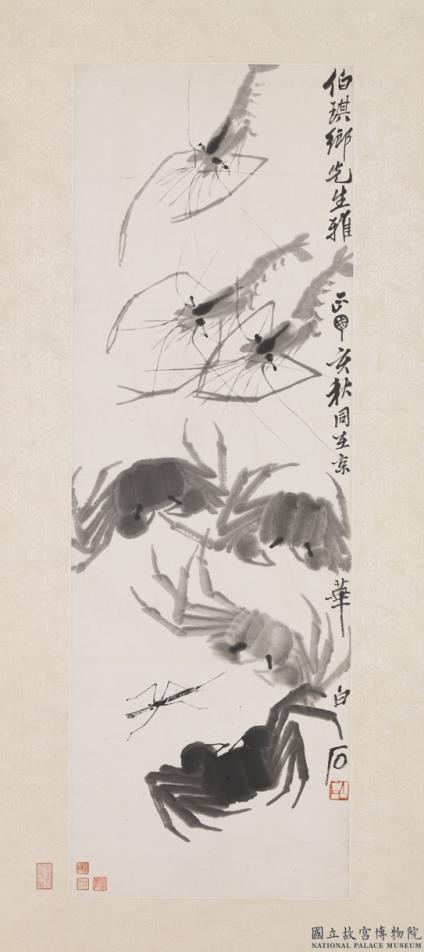 伯琪鄉先生雅正 亥秋同在京華 白石
國立故宮博物院
NATIONAL PALACE MUSEUM